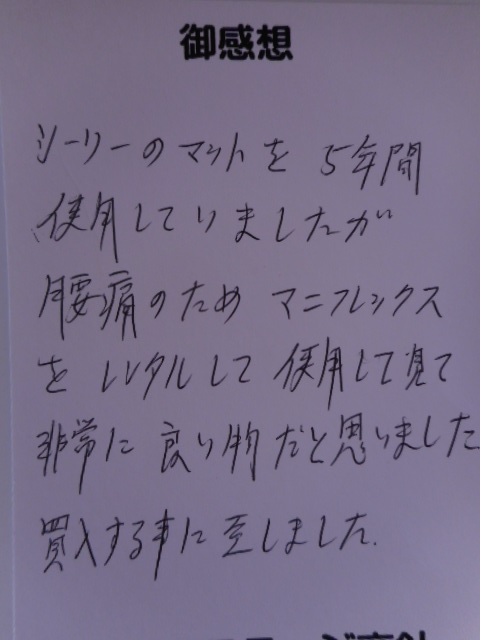 御感想
シーリーのマットを 5年間
使用していましたが
腰痛のため マニフレックス
を レンタルして 使用して見て
非常に 良い物だと思いました
買入する事に至しました.